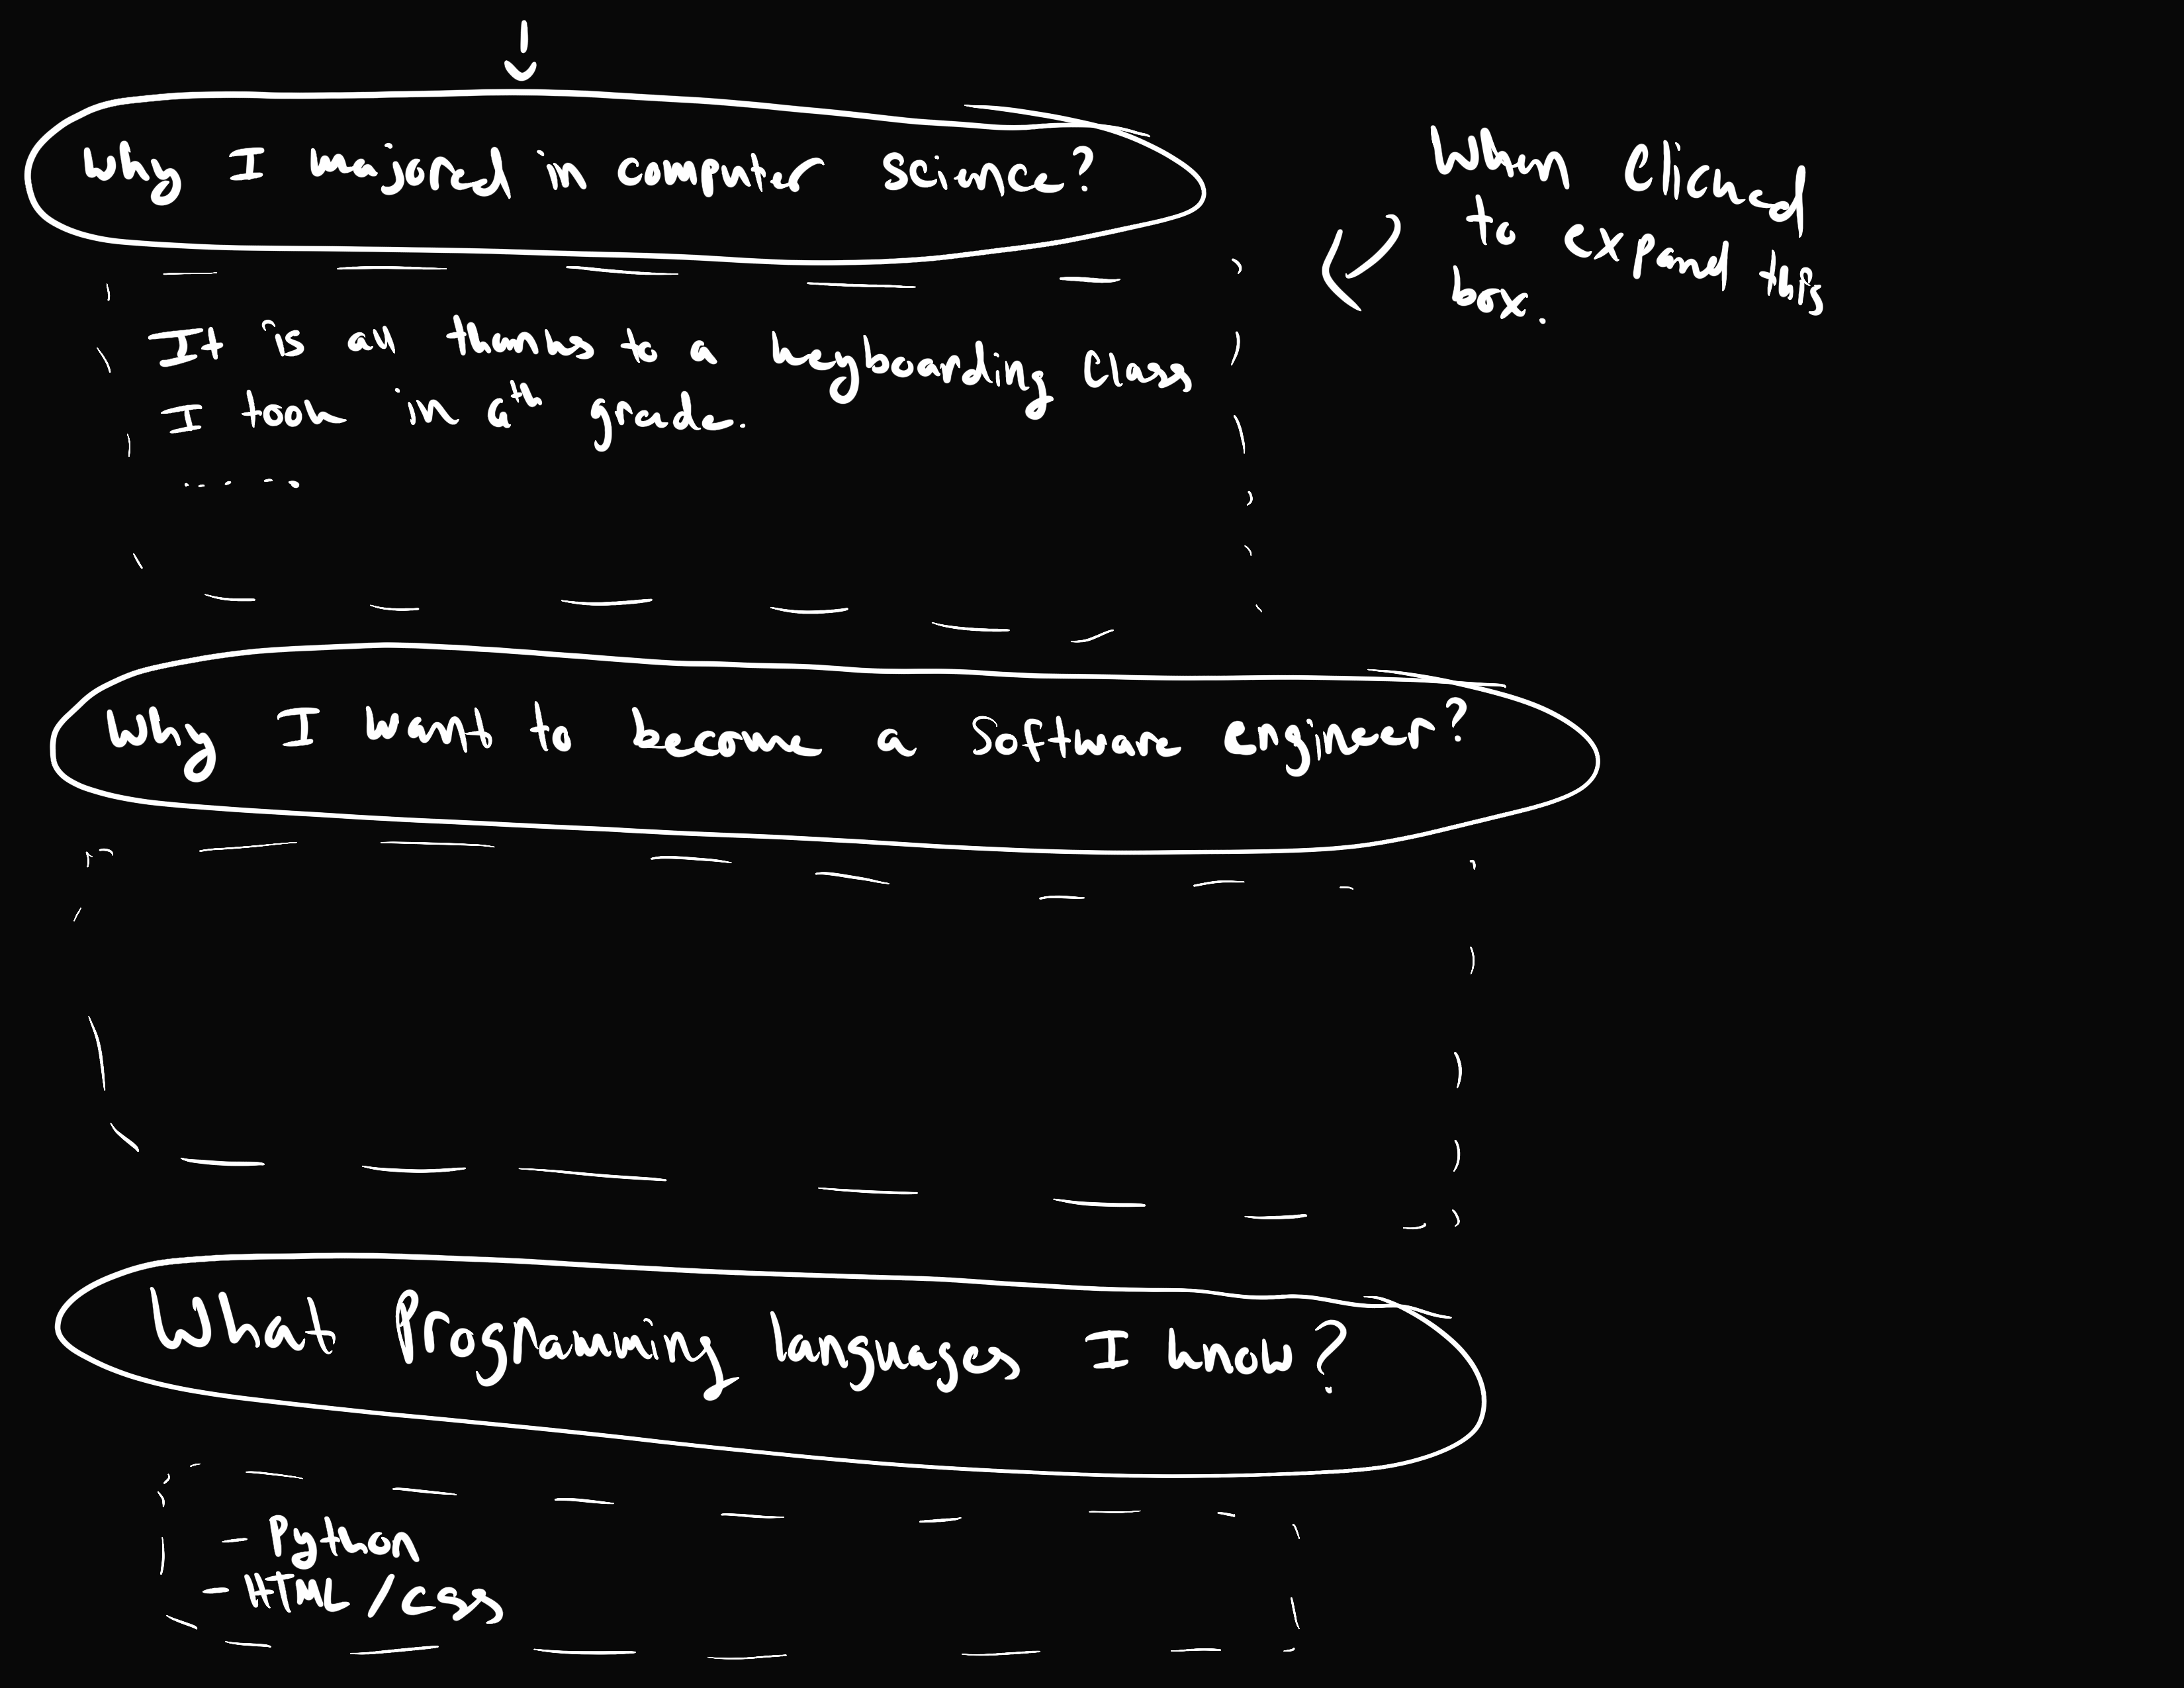 Why I majored in computer science?
When clicked
to expand this
box.
It is all thanks to a keyboarding class
I took in 6th grade.
.....
Why I want to become a software engineer?
What Programming languages I know?
- Python
- HTML/CSS